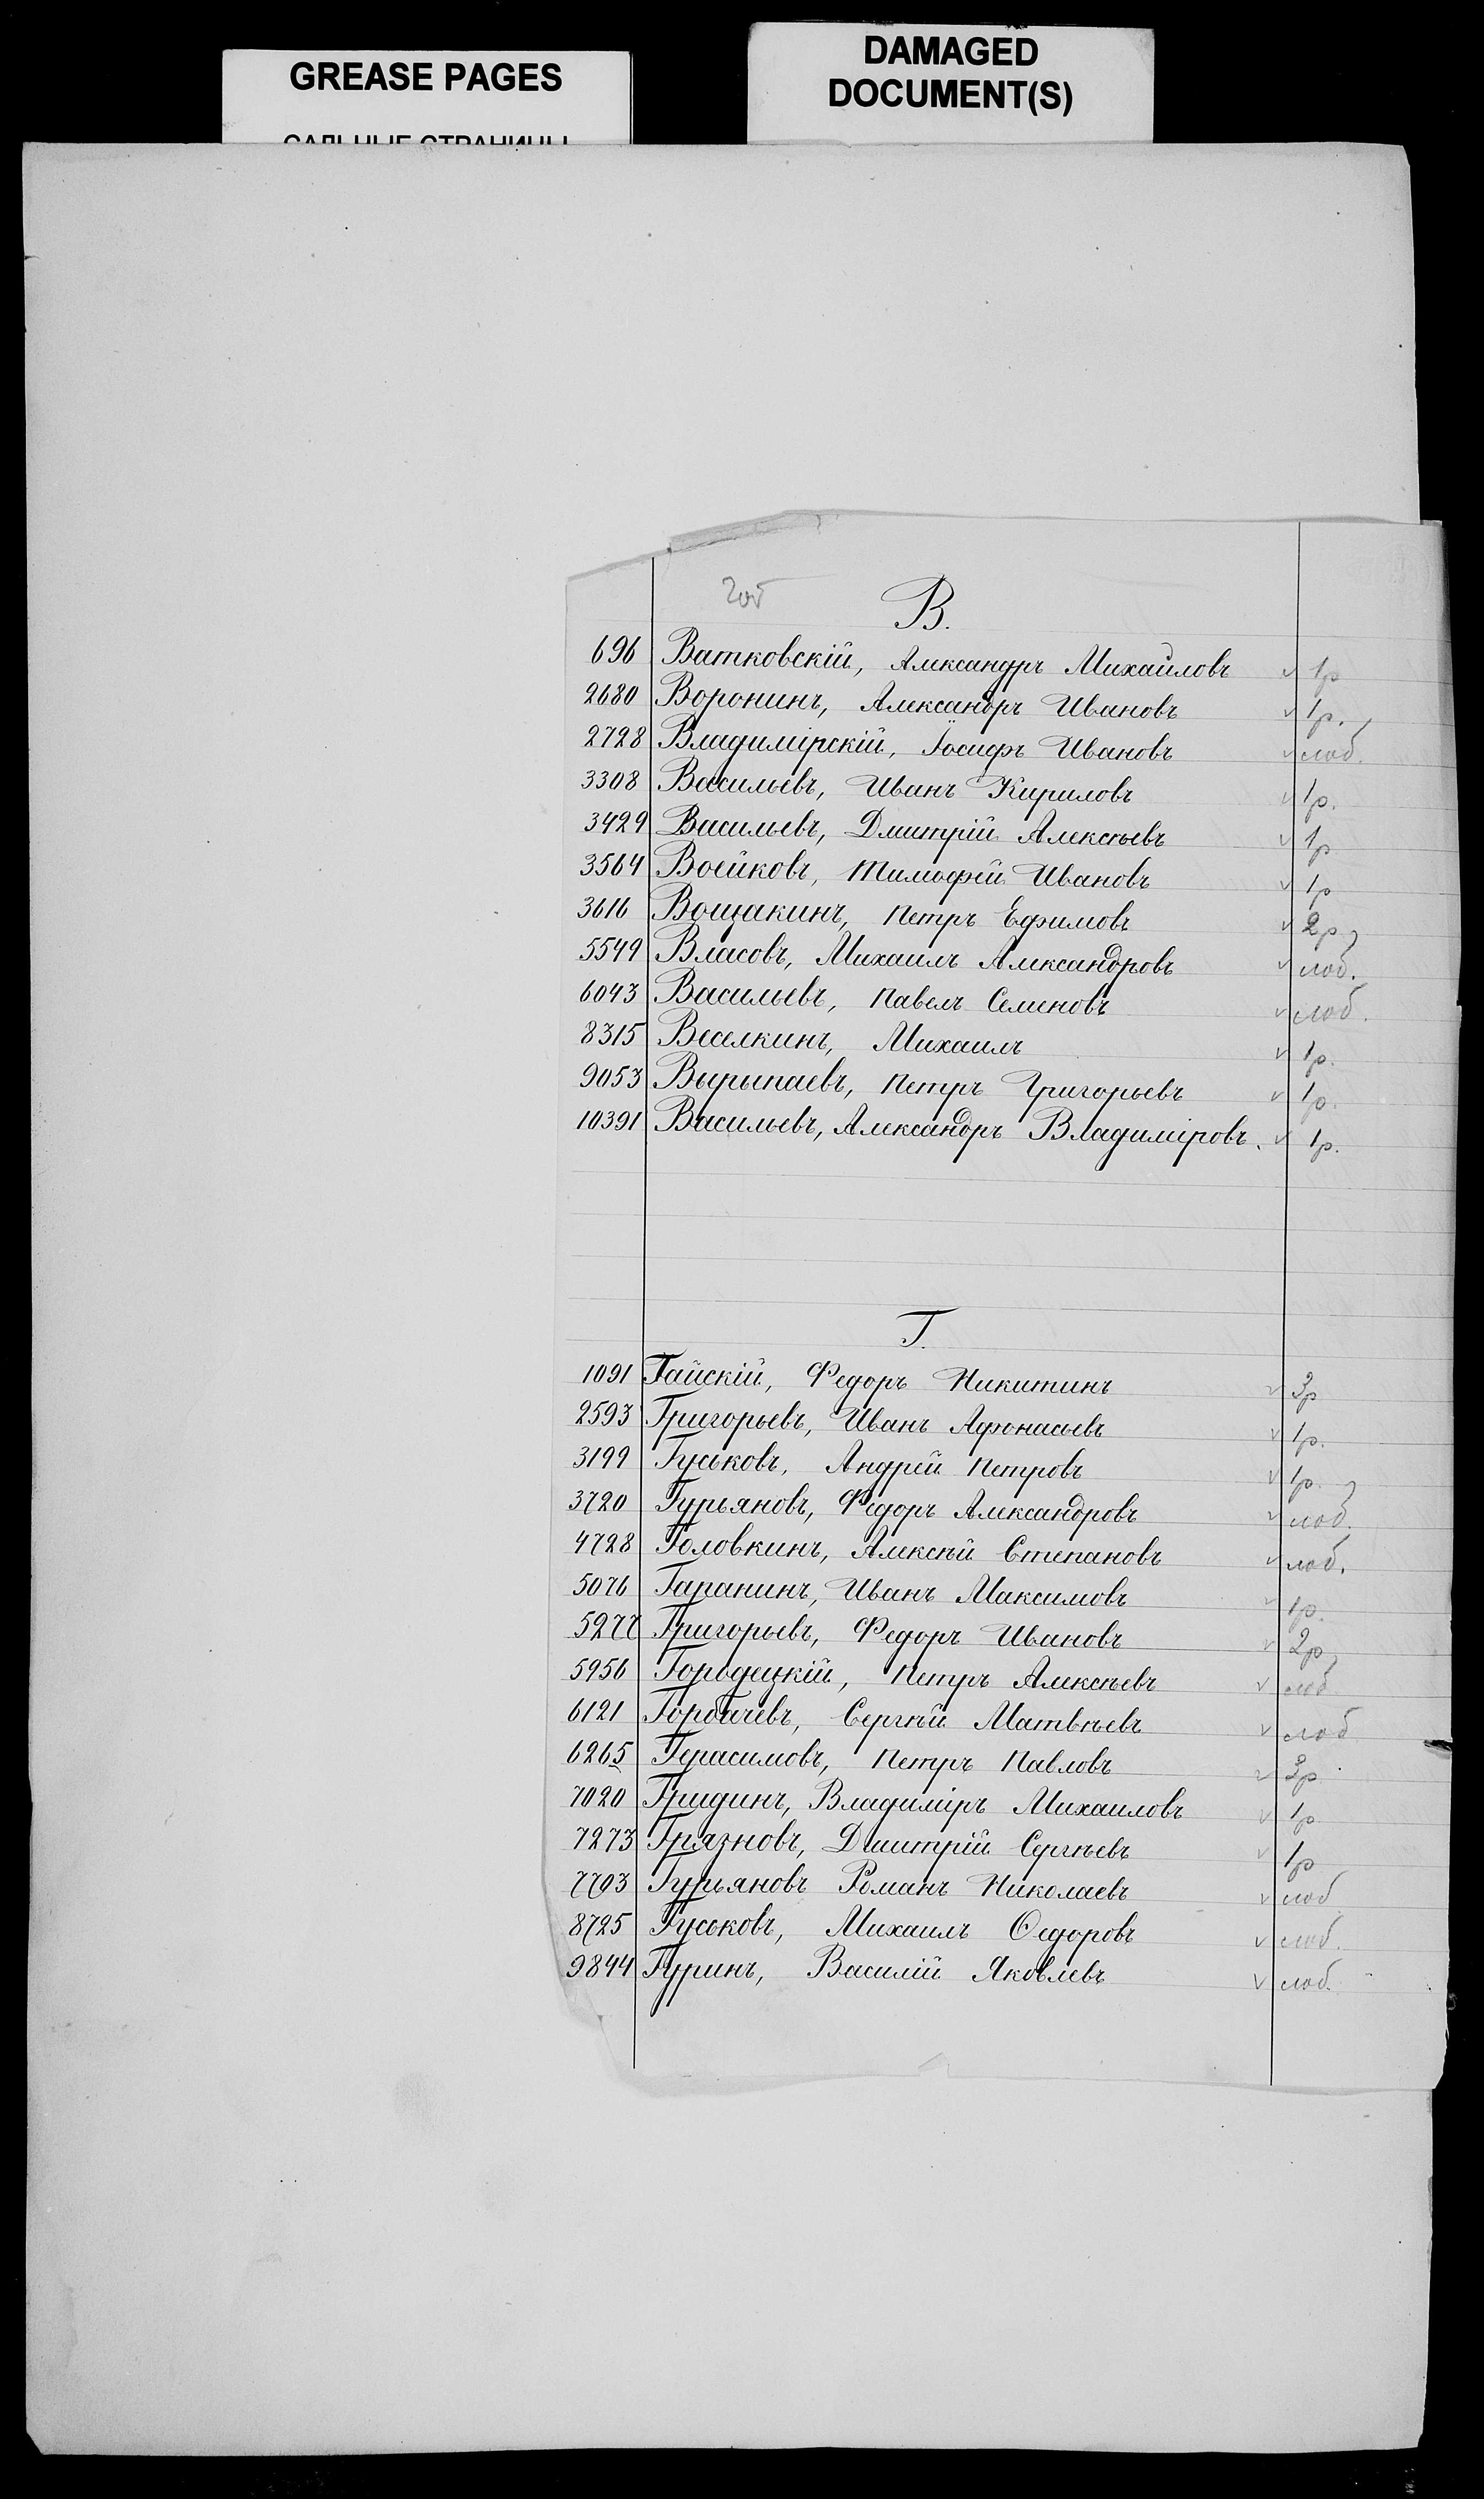 GREASE PAGES
САЛЬНЫЕ СТРАНИЦЫ
DAMAGED
DOCUMENT(S)
В.
696 Ватковскій, Александръ Михайловъ v 1р
2680 Воронинъ, Александръ Ивановъ v 1р.
2728 Владимірскій, Іосифъ Ивановъ v слоб.
3308 Васильевъ, Иванъ Кириловъ v 1р.
3429 Васильевъ, Дмитрій Алексѣевъ v 1р
3564 Воейковъ, Тимофей Ивановъ v 1р
3616 Вощакинъ, Петръ Ефимовъ v 2р
5549 Власовъ, Михаилъ Александровъ v слоб.
6043 Васильевъ, Павелъ Семеновъ v слоб.
8315 Веселкинъ, Михаилъ v 1р.
9053 Вырыпаевъ, Петръ Григорьевъ v 1р.
10391 Васильевъ, Александръ Владиміровъ. v 1р.
Г.
1091 Гайскій, Федоръ Никитинъ v 3р
2593 Григорьевъ, Иванъ Афонасьевъ v 1р.
3199 Гуськовъ, Андрей Петровъ v 1р.
3720 Гурьяновъ, Федоръ Александровъ v слоб.
4728 Головкинъ, Алексѣй Степановъ v слоб.
5076 Гаранинъ, Иванъ Максимовъ v 1р.
5277 Григорьевъ, Федоръ Ивановъ v 2р
5956 Городецкій, Петръ Алексѣевъ v слоб
6121 Горбачевъ, Сергѣй Матвѣевъ v слоб
6265 Герасимовъ, Петръ Павловъ v 3р
7020 Гридинъ, Владиміръ Михаиловъ v 1р
7273 Грязновъ, Дмитрій Сергѣевъ v 1р
7793 Гурьяновъ Романъ Николаевъ v слоб
8725 Гуськовъ, Михаилъ Ѳедоровъ v слоб.
9844 Гуринъ, Василій Яковлевъ v слоб.